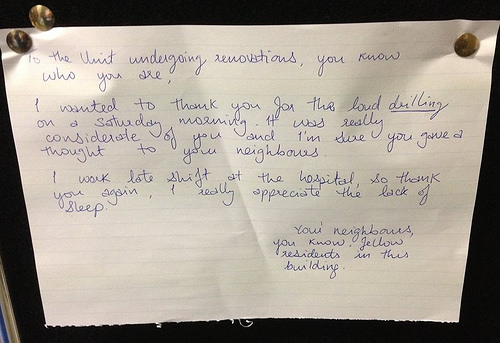 To the Unit undergoing renovations, you know
who you are,
I wanted to thank you for the loud drilling
on a Saturday morning. It was really
considerate of you and I'm sure you gave a
thought to your neighbours.
I work late shift at the hospital, so thank
you again, I really appreciate the lack of
sleep.
Your neighbours,
you know, fellow
residents in this
building.